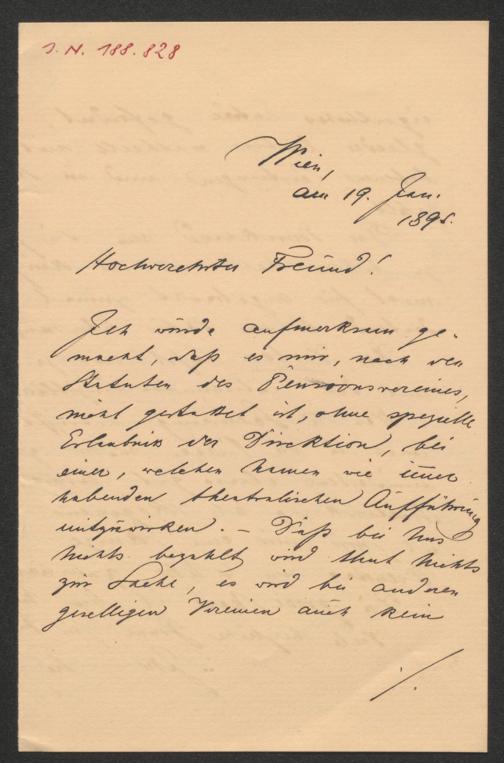 J. N. 188.828
Wien,
am 19. Jan.
1895.
Hochverehrter Freund!
Ich wurde aufmerksam ge-
macht, daß es mir, nach den
Statuten des Pensionsvereines,
nicht gestattet ist, ohne spezielle
Erlaubniß der Direktion, bei
einer, welchen Namen wie immer
habenden theatralischen Aufführung
mitzuwirken. – Daß bei Uns
Nichts bezahlt wird thut Nichts
zur Sache, es wird bei anderen
geselligen Vereinen auch kein
./.